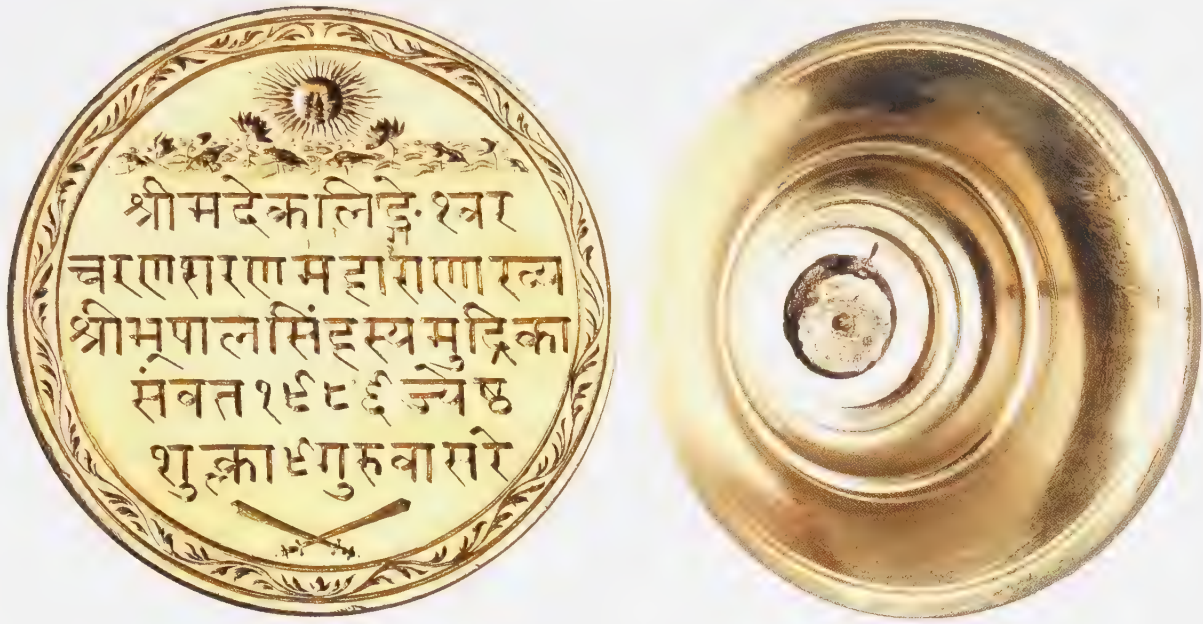 श्रीमदेकलिङ्गेश्वर
चरणशरणमहाराणारत्न
श्रीभूपालसिंहस्य मुद्रिका
संवत १९८६ ज्येष्ठ
शुक्ला ९ गुरुवासरे